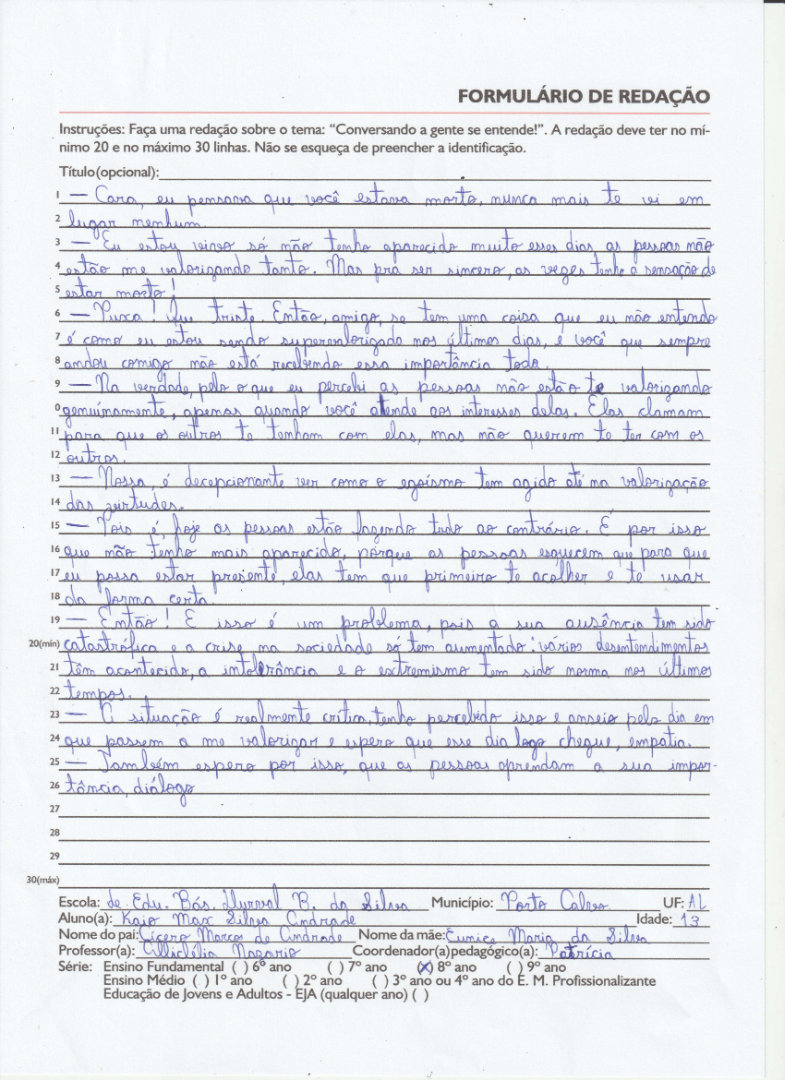 FORMULÁRIO DE REDAÇÃO
Instruções: Faça uma redação sobre o tema: “Conversando a gente se entende!”. A redação deve ter no mí-
nimo 20 e no máximo 30 linhas. Não se esqueça de preencher a identificação.
Título (opcional):
1 — Cara, eu pensava que você estava morto, nunca mais te vi em
2 lugar nenhum.
3 — Eu estou vivo só não tenho aparecido muito esses dias, as pessoas não
4 estão me valorizando tanto. Mas pra ser sincero, as vezes tenho a sensação de
5 estar morto!
6 — Puxa! Que triste. Então, amigo, se tem uma coisa que eu não entendo
7 é como eu estou sendo supervalorizada nos últimos dias, e você que sempre
8 andou comigo não está recebendo essa importância toda.
9 — Na verdade, pelo o que eu percebi as pessoas não estão te valorizando
0 genuinamente, apenas quando você atende aos interesses delas. Elas clamam
11 para que os outros te tenham com elas, mas não querem te ter com os
12 outros.
13 — Nossa, é decepcionante ver como o egoísmo tem agido até na valorização
14 das virtudes.
15 — Pois é, hoje as pessoas estão fazendo tudo ao contrário. É por isso
16 que não tenho mais aparecido, porque as pessoas esquecem que para que
17 eu possa estar presente, elas tem que primeiro te acolher e te usar
18 da forma certa.
19 — Então! E isso é um problema, pois a sua ausência tem sido
20(mín) catastrófica e a crise na sociedade só tem aumentado: vários desentendimentos
21 têm acontecido, a intolerância e o extremismo tem sido norma nos últimos
22 tempos.
23 — A situação é realmente crítica, tenho percebido isso e anseio pelo dia em
24 que passem a me valorizar e espero que esse dia logo chegue, empatia.
25 — Também espero por isso, que as pessoas aprendam a sua impor-
26 tância, diálogo
27
28
29
30(máx)
Escola: de Edu. Bás. Durval B. da Silva Município: Porto Calvo UF: AL
Aluno(a): Kaio Max Silva Andrade Idade: 13
Nome do pai: Cícero Marcos de Andrade Nome da mãe: Eunice Maria da Silva
Professor(a): Nazario Coordenador(a) pedagógico(a): Patrícia
Série: Ensino Fundamental ( ) 6º ano ( ) 7º ano (X) 8º ano ( ) 9º ano
Ensino Médio ( ) 1º ano ( ) 2º ano ( ) 3º ano ou 4º ano do E. M. Profissionalizante
Educação de Jovens e Adultos - EJA (qualquer ano) ( )